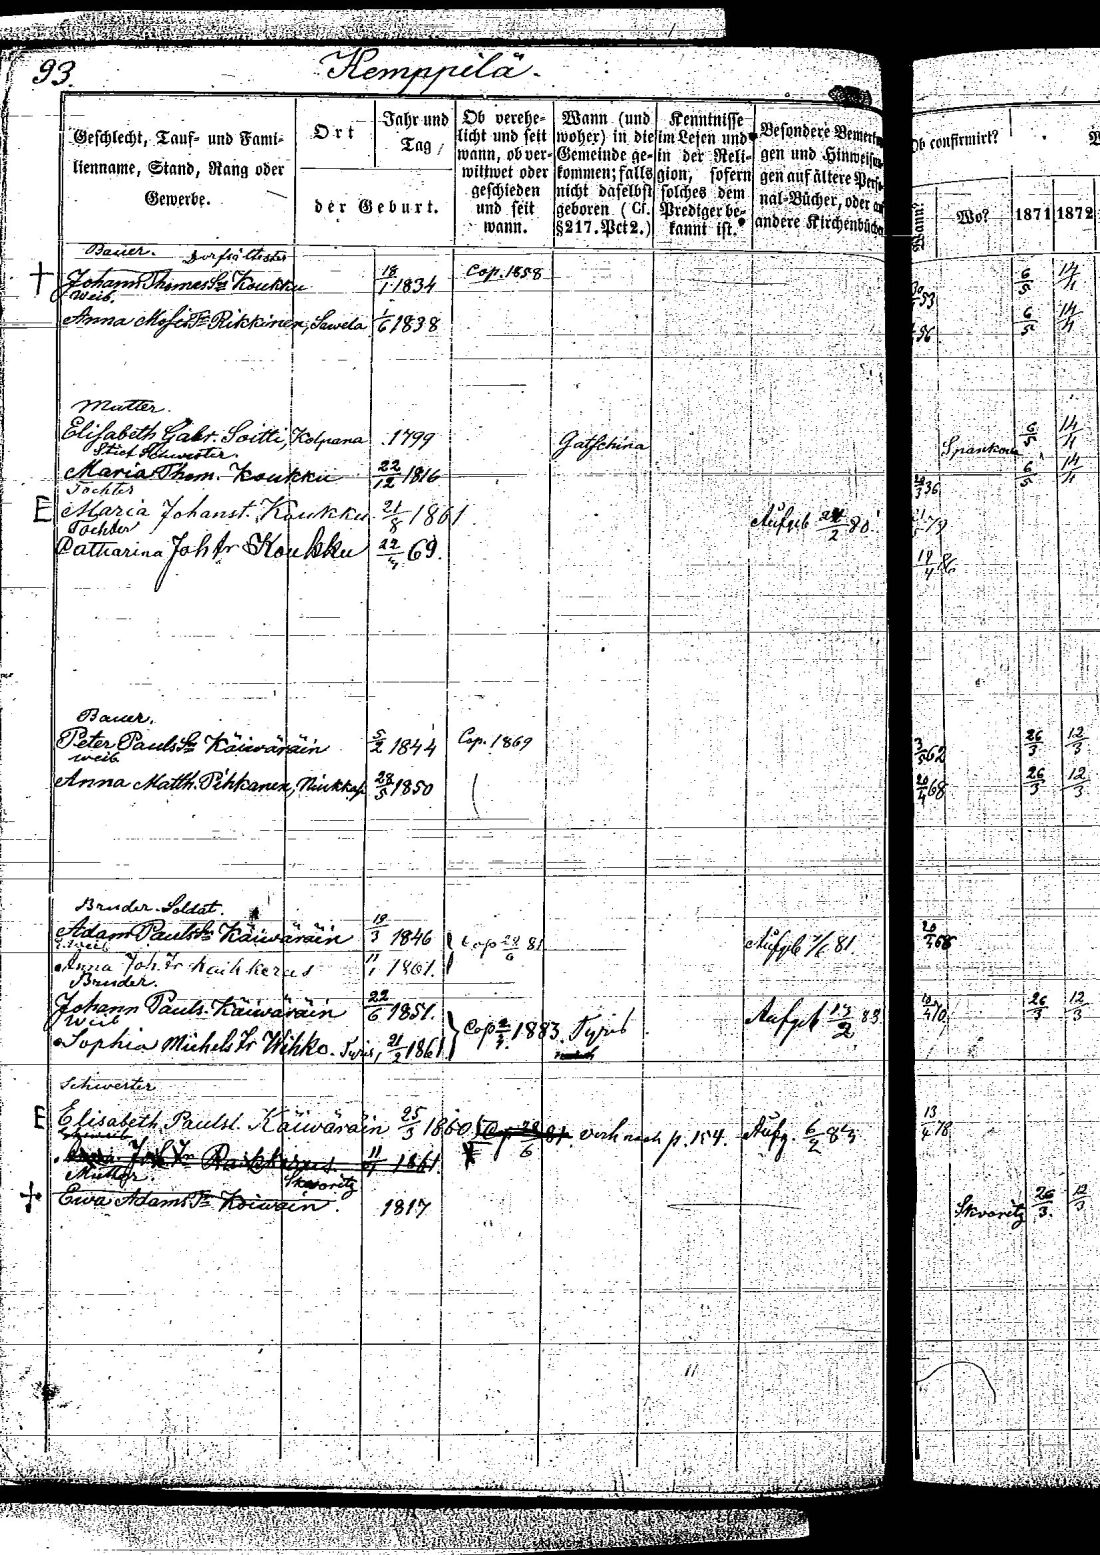 93.
Kemppilä.
Geschlecht, Tauf- und Fami-
lienname, Stand, Rang oder
Gewerbe.
Ort
Jahr und
Tag
der Geburt.
Ob verehe-
licht und seit
wann, ob ver-
wittwet oder
geschieden
und seit
wann.
Wann (und
woher) in die
Gemeinde ge-
kommen; falls
nicht daselbst
geboren (Cf.
§217. Pct 2.)
Kenntnisse
im Lesen und
in der Reli-
gion, sofern
solches dem
Prediger be-
kannt ist.
Besondere Bemerkun
gen und Hinweisun
gen auf ältere Perso
nal-Bücher, oder auf
andere Kirchenbücher
Ob confirmirt?
Wann?
Wo?
1871
1872
Bauer. Dorfältester
† Johann Thomas Sn Koukku 18/1 1834 Cop. 1858 30/ 53 6/5 14/4
Weib.
Anna Moses Tr Rikkinen, Sawela 1/6 1838 56 6/5 14/4
Mutter.
Elisabeth Gabr. Soitti, Kolpana 1799 Gatschina Spankowa 6/5 14/4
Stiefschwester.
Maria Thom. Koukku 22/12 1816 36 6/5 14/4
Tochter
E Maria Johanst. Koukku 21/8 1861. Aufgeb 24/2 80. 79
Tochter
Catharina Joh tr Koukku 22/4 69. 19/4 86
Bauer.
Peter Pauls Sn Käiwäräin 5/2 1844 Cop. 1869 3/5 62 26/3 12/3
Weib
Anna Matth. Pihkanen, Niukkas. 28/5 1850 20/4 68 26/3 12/3
Bruder. Soldat.
Adam Pauls Sn Käiwäräin 19/3 1846 Cop 28/6 81 Aufgeb 7/6 81. 68
Weib
Anna Joh. Tr Raikkerus 11/1 1861.
Bruder.
Johann Pauls. Käiwäräin 22/6 1851. Cop 2/3 1883. Tyris Aufgeb 13/2 83 /4 70 26/3 12/3
Weib
Sophia Michels Tr Wihko. Tyris, 21/2 1861
Schwester
E Elisabeth Paulst. Käiwäräin 25/3 1860 Cop 28/6 81. verh nach p. 154. Aufg. 6/2 83 13/4 78
Anna Joh Tr Raikkerus 11/1 1861.
Mutter. Skworitz
† Ewa Adams Tr Koiwain. 1817 Skworitz 26/3. 12/3